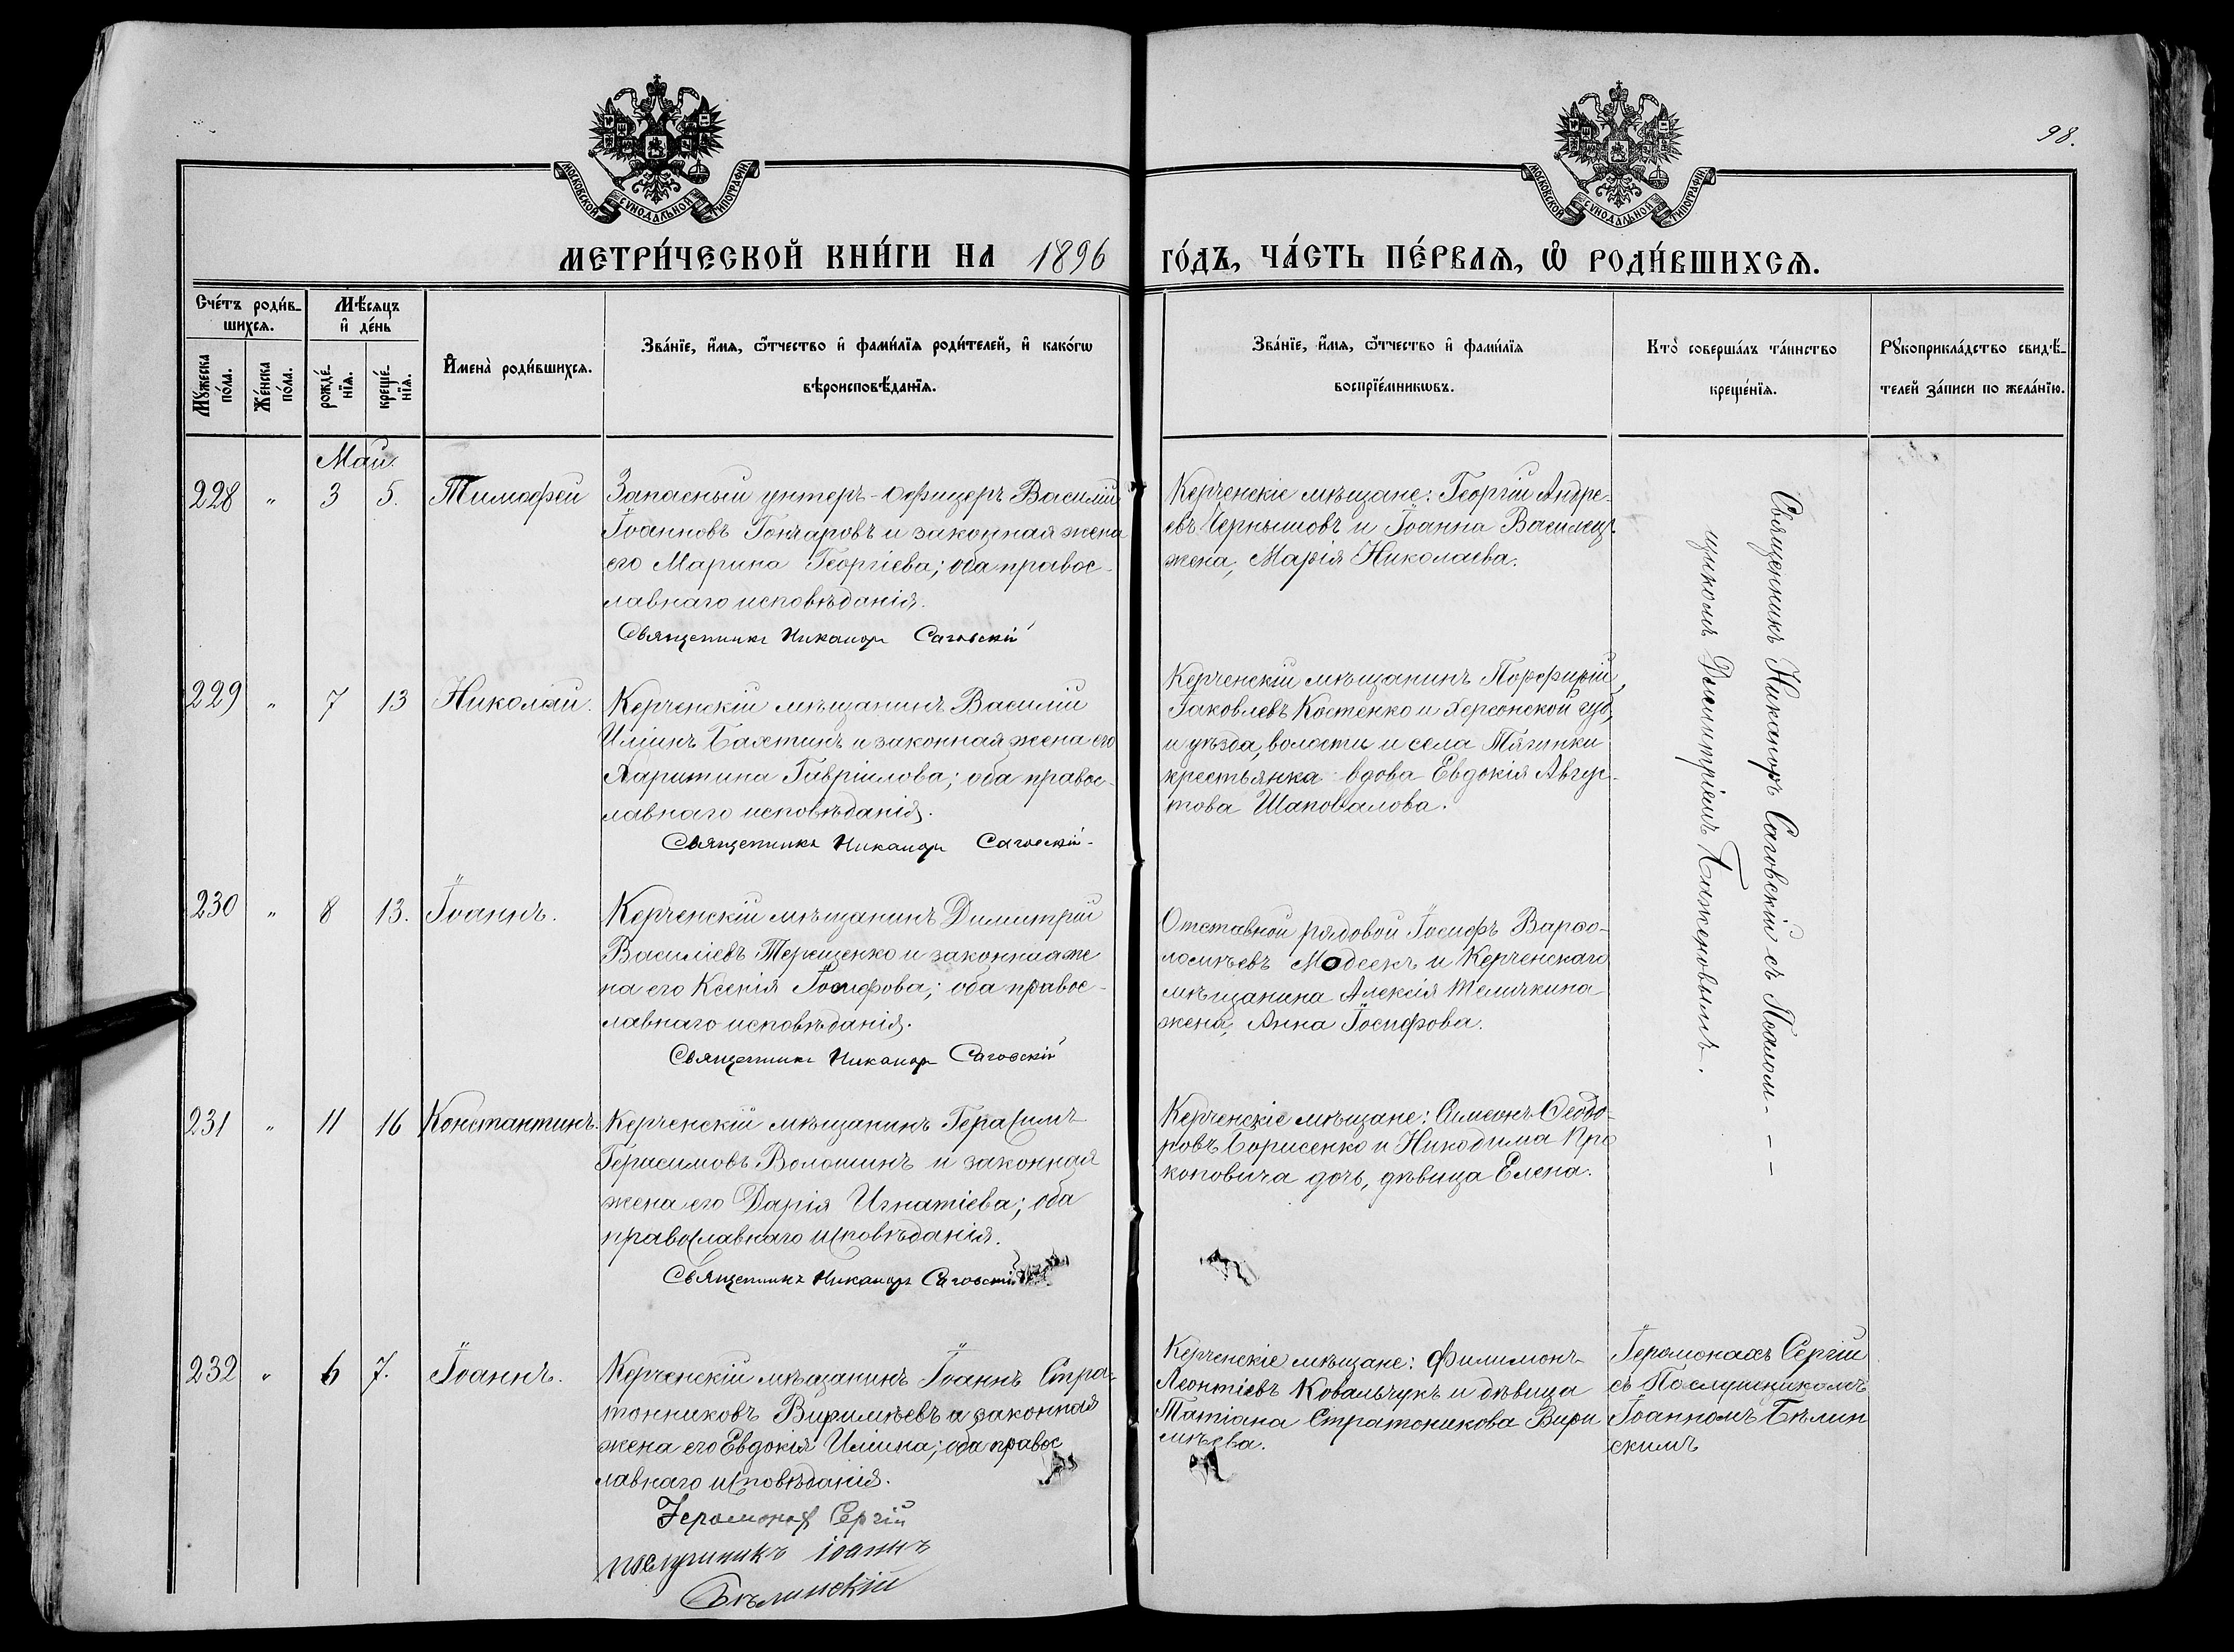 98.
МОСКОВСКОЙ СѴНОДАЛЬНОЙ ТИПОГРАФІИ
МОСКОВСКОЙ СѴНОДАЛЬНОЙ ТИПОГРАФІИ
МЕТРИ́ЧЕСКОЙ КНИ́ГИ НА 1896 ГО́ДЪ, ЧА́СТЬ ПЕ́РВАѦ, Ѡ҆ РОДИ́ВШИХСѦ.
Сче́тъ роди́в-
шихсѧ.
Мꙋ́жеска по́ла.
Же́нска по́ла.
Мѣ́сѧцъ
и҆ де́нь
рожде́-
нїѧ.
креще́-
нїѧ.
И҆мена̀ роди́вшихсѧ.
Зва́нїе, и҆́мѧ, ѻ҆́тчество и҆ фами́лїѧ роди́телей, и҆ како́гѡ
вѣроисповѣ́данїѧ.
Зва́нїе, и҆́мѧ, ѻ҆́тчество и҆ фами́лїѧ
воспрїе́мникѡвъ.
Кто̀ соверша́лъ та́инство
креще́нїѧ.
Рꙋкоприкла́дство свидѣ́-
телей за́писи по жела́нїю.
Май.
228 " 3 5. Тимофей
Запасный унтеръ-офицеръ Василій
Іоанновъ Гончаровъ и законная жена
его Марина Георгіева; оба правос-
лавнаго исповѣданія.
Священникъ Никаноръ Саговскій
Керченскіе мѣщане: Георгій Андре-
евъ Чернышовъ и Іоанна
жена, Марія Николаева.
229 " 7 13 Николай.
Керченскій мѣщанинъ Василій
Иліинъ Бахтинъ и законная жена его
Харитина Гавріилова; оба правос-
лавнаго исповѣданія.
Священникъ Никаноръ Саговскій
Керченскій мѣщанинъ Порфирій
Іаковлевъ Костенко и Херсонской губ,
и уѣзда, волости и села Тягинки
крестьянка вдова Евдокія Авгус-
това Шаповалова.
230 " 8 13. Іоаннъ.
Керченскій мѣщанинъ Димитрій
Василіевъ Терещенко и законная же
на его Ксенія Іосифова; оба правос-
лавнаго исповѣданія.
Священникъ Никаноръ Саговскій
Отставной рядовой Іосифъ Варѳо-
ломѣевъ и Керченскаго
мѣщанина Алексія Темичкина
жена, Анна Іосифова.
231 " 11 16 Константинъ.
Керченскій мѣщанинъ Герасимъ
Герасимовъ Волошинъ и законная
жена его Дарія Игнатіева; оба
православнаго исповѣданія.
Священникъ Никаноръ Саговскій
Керченскіе мѣщане: Симеонъ Ѳеодо-
ровъ Борисенко и Никодима Про
коповича дочь, дѣвица Елена.
Священникъ Никаноръ Саговскій съ Псалом- - -
щикомъ Димитріемъ Баженовымъ.
232 " 6 7. Іоаннъ.
Керченскій мѣщанинъ Іоаннъ Стра-
тонниковъ Виримѣевъ и законная
жена его Евдокія Иліина; оба правос
лавнаго исповѣданія.
Іеромонахъ Сергій
послушникъ Іоаннъ
Бѣлинскій
Керченскіе мѣщане: Филимонъ
Леонтіевъ Ковальчукъ и дѣвица
Татіана Стратоникова Вири
мѣева.
Іеромонахъ Сергій
съ Послушникомъ
Іоанномъ Бѣлин
скимъ